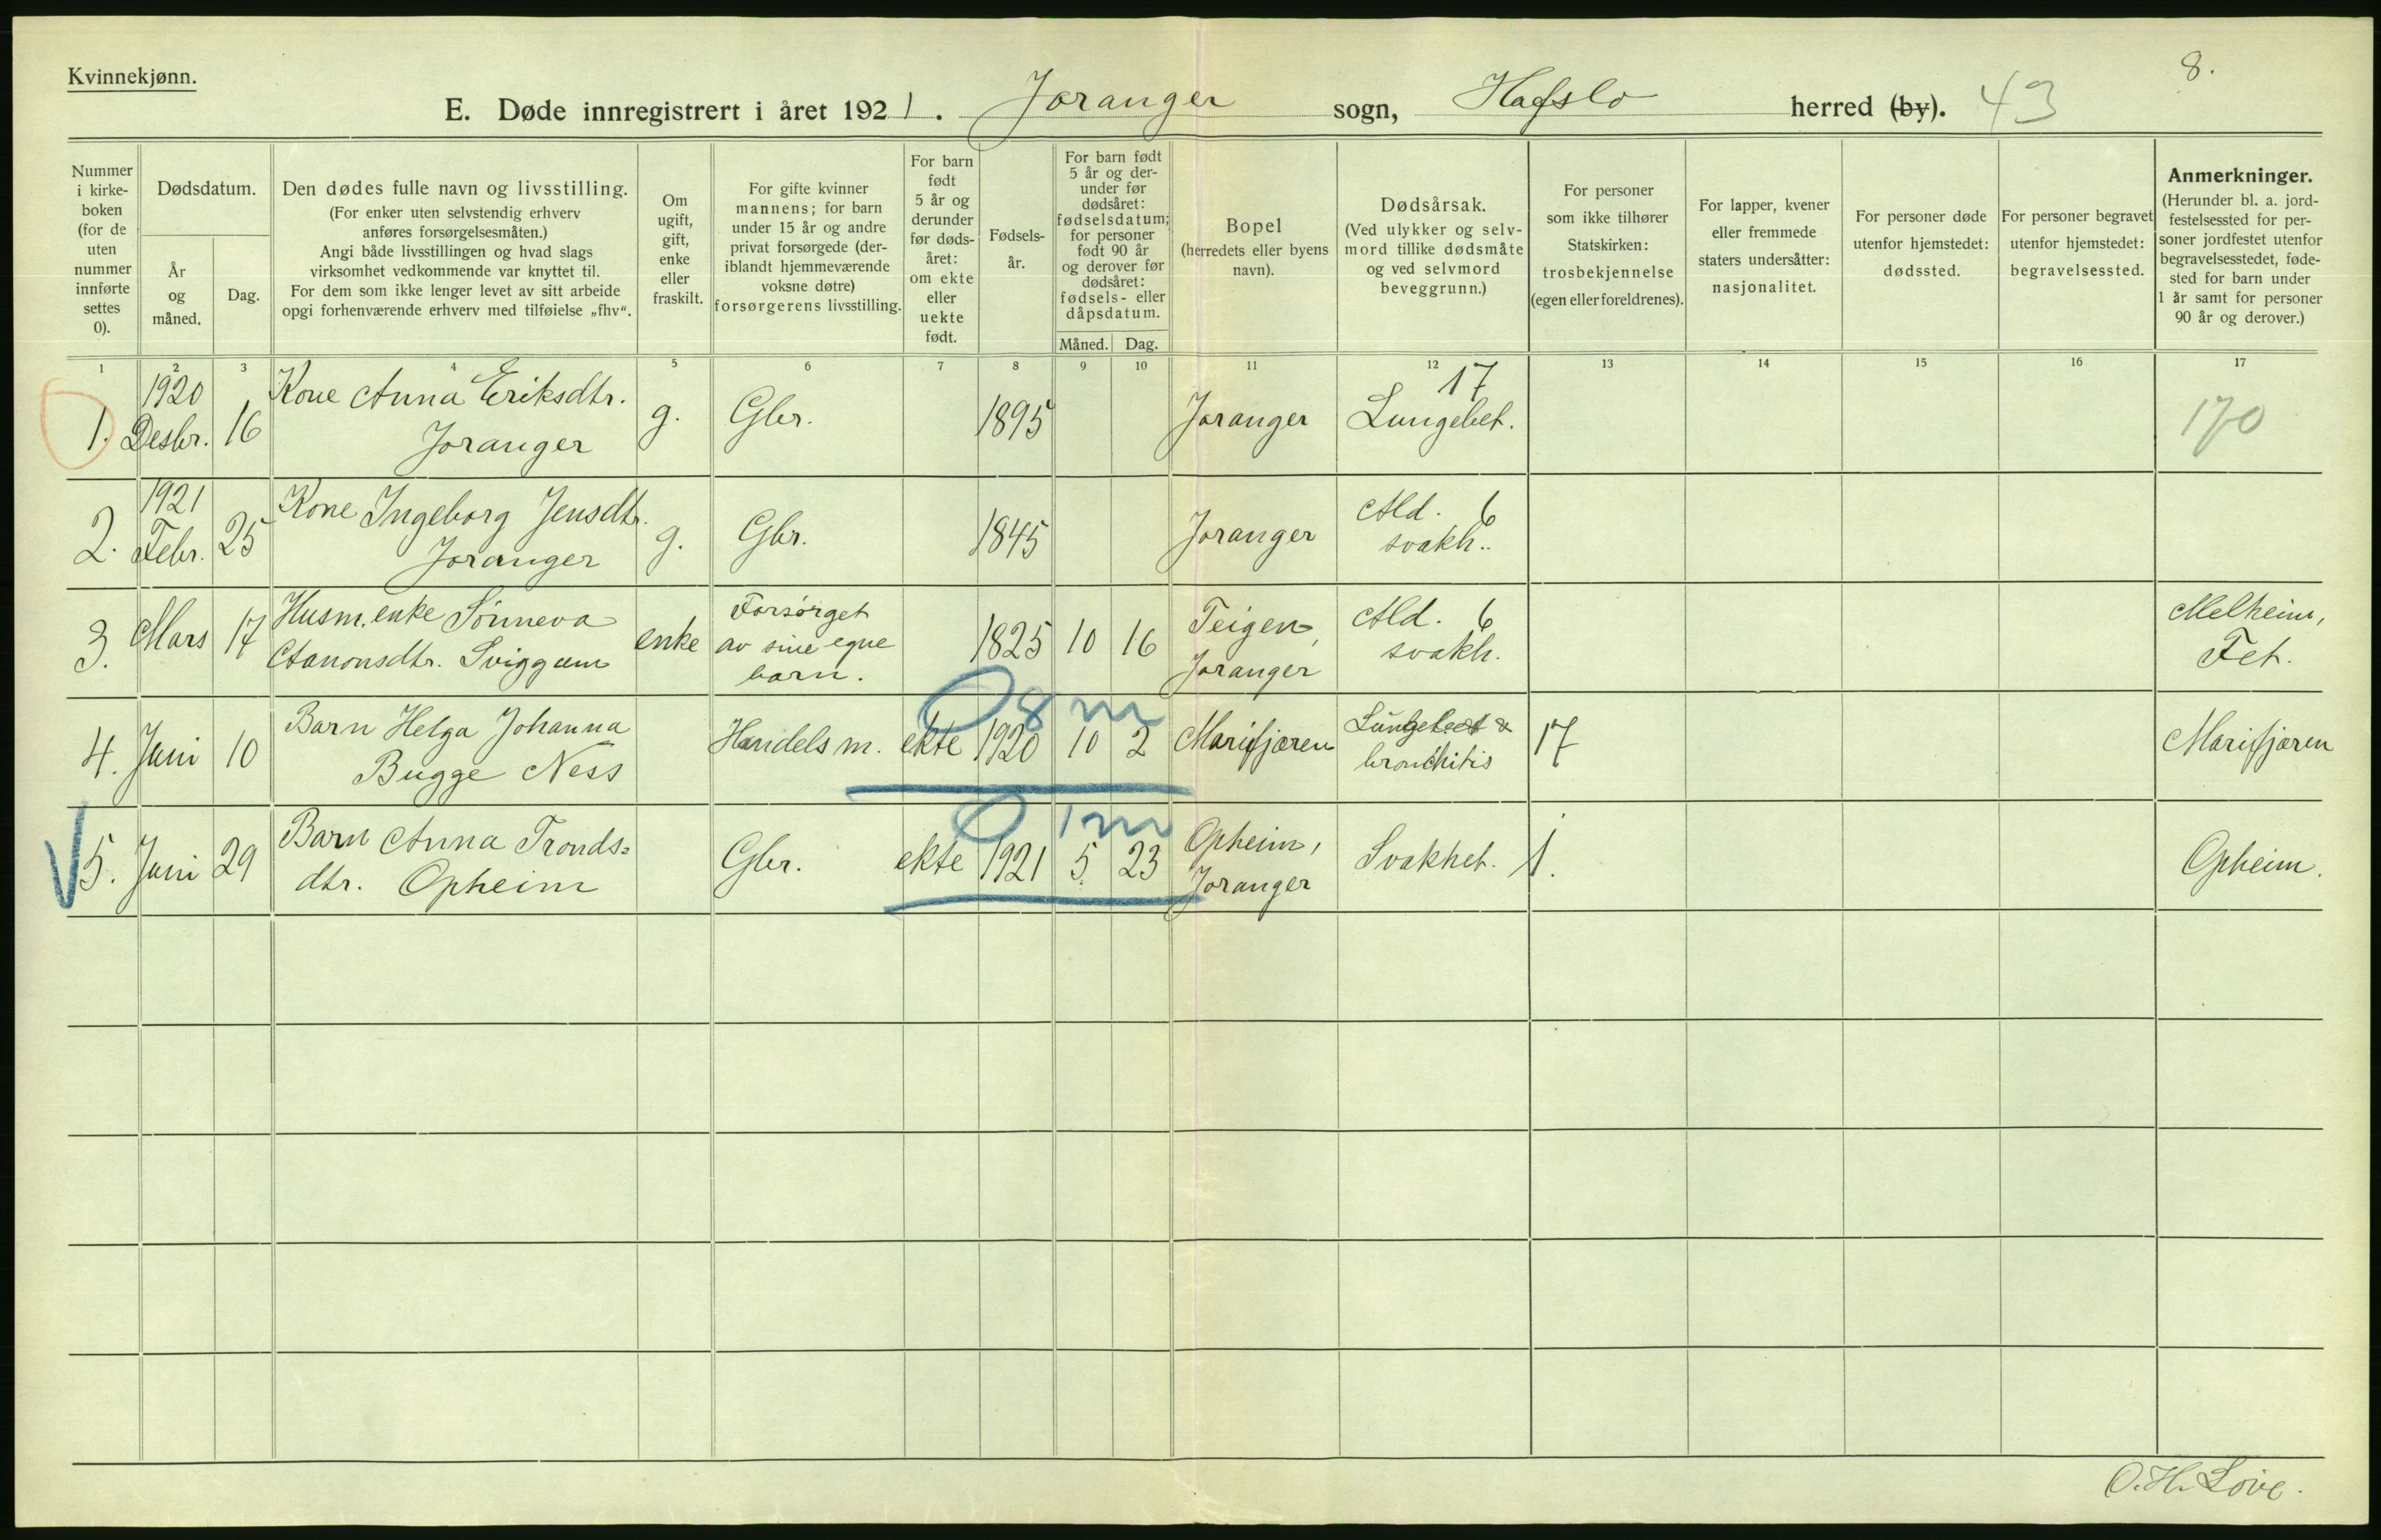 Kvinnekjønn.
8.
E. Døde innregistrert i året 1921. Joranger sogn, Hafslo herred (by). 43
Nummer
i kirke-
boken
(for de
uten
nummer
innførte
settes
0).
Dødsdatum.
År
og
måned.
Dag.
Den dødes fulle navn og livsstilling.
(For enker uten selvstendig erhverv
anføres forsørgelsesmåten.)
Angi både livsstillingen og hvad slags
virksomhet vedkommende var knyttet til.
For dem som ikke lenger levet av sitt arbeide
opgi forhenværende erhverv med tilføielse „fhv“.
Om
ugift,
gift,
enke
eller
fraskilt.
For gifte kvinner
mannens; for barn
under 15 år og andre
privat forsørgede (der-
iblandt hjemmeværende
voksne døtre)
forsørgerens livsstilling.
For barn
født
5 år og
derunder
før døds-
året:
om ekte
eller
uekte
født.
Fødsels-
år.
For barn født
5 år og der-
under før
dødsåret:
fødselsdatum;
for personer
født 90 år
og derover før
dødsåret:
fødsels- eller
dåpsdatum.
Måned. Dag.
Bopel
(herredets eller byens
navn).
Dødsårsak.
(Ved ulykker og selv-
mord tillike dødsmåte
og ved selvmord
beveggrunn.)
For personer
som ikke tilhører
Statskirken:
trosbekjennelse
(egen eller foreldrenes).
For lapper, kvener
eller fremmede
staters undersåtter:
nasjonalitet.
For personer døde
utenfor hjemstedet:
dødssted.
For personer begravet
utenfor hjemstedet:
begravelsessted.
Anmerkninger.
(Herunder bl. a. jord-
festelsessted for per-
soner jordfestet utenfor
begravelsesstedet, føde-
sted for barn under
1 år samt for personer
90 år og derover.)
1 2 3 4 5 6 7 8 9 10 11 12 13 14 15 16 17
1. 1920 Desbr. 16
Kone Anna Eriksdtr.
Joranger
g. Gbr. 1895 Joranger
17
Lungebet.
170
2. 1921 Febr. 25
Kone Ingeborg Jensdtr.
Joranger
g. Gbr. 1845 Joranger
Ald. 6
svakh..
3. Mars 17
Husm. enke Sönneva
Aanonsdtr. Sviggum
enke
Forsørget
av sine egne
barn.
1825 10 16
Teigen,
Joranger
Ald. 6
svakh.
Melheim,
Fet.
4. Juni 10
Barn Helga Johanna
Bugge Ness
Handelsm. ekte 1920 10 2
0 8 m
Marifjæren
Lungebet &
bronchitis
17
Marifjæren
5. Juni 29
Barn Anna Tronds=
dtr. Opheim
Gbr. ekte 1921 5 23
0 1 m
Opheim,
Joranger
Svakhet. 1.
Opheim.
O. H. Loive.